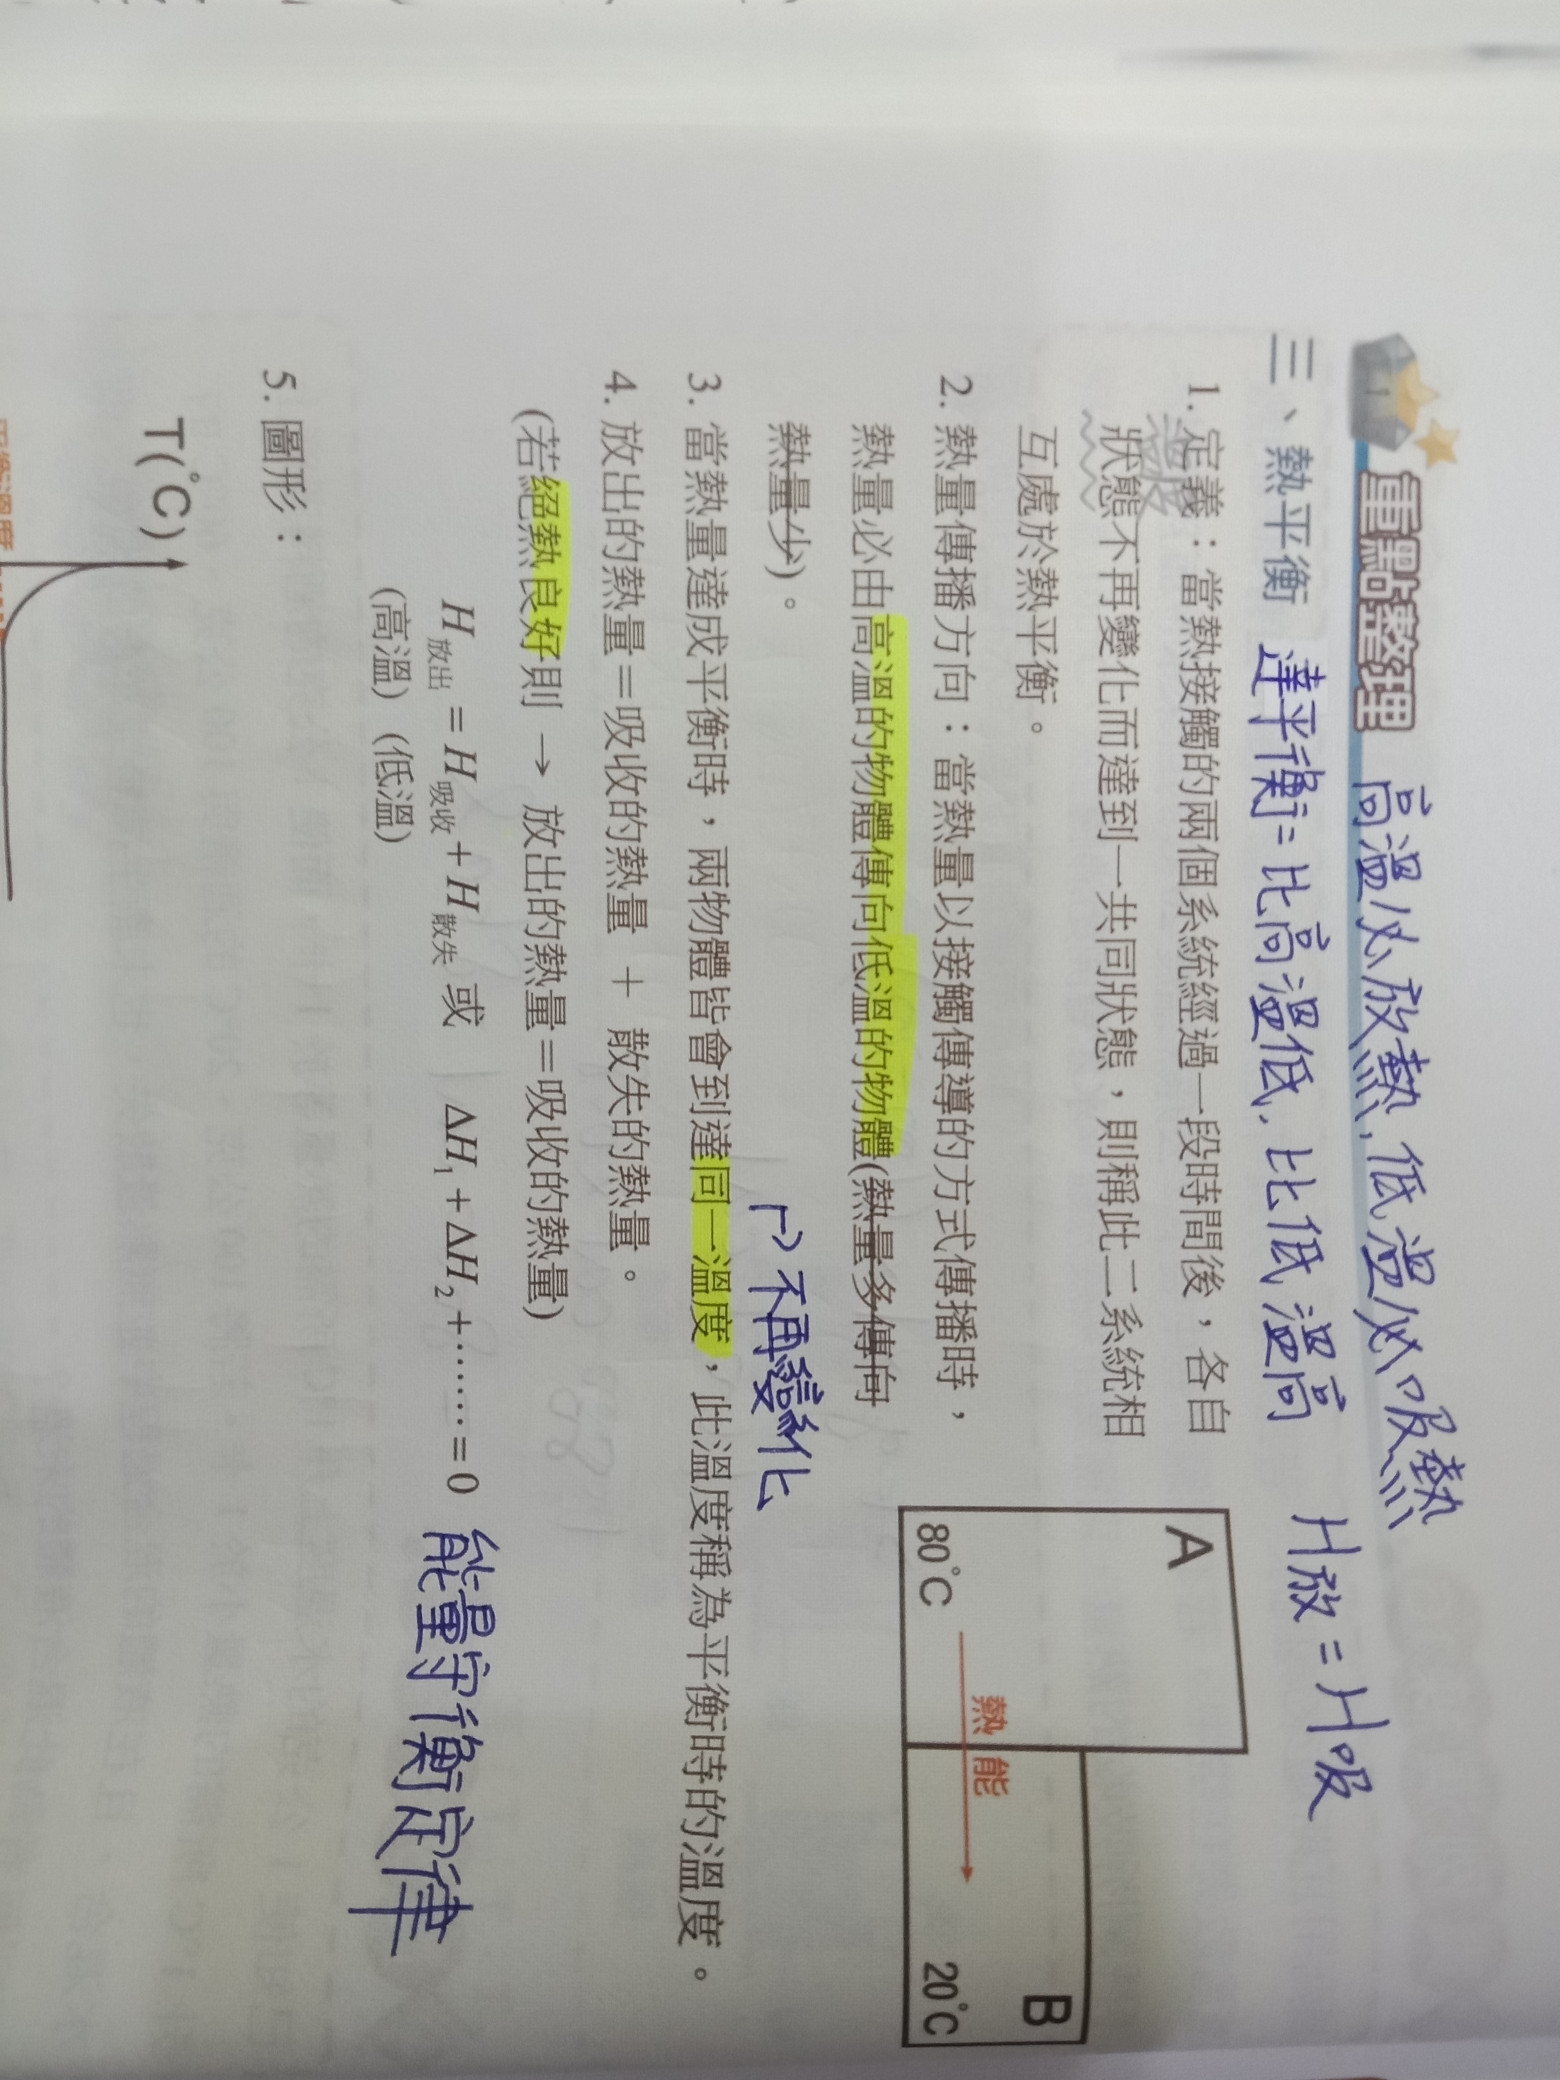 重點整理 高溫必放熱,低溫必吸熱
三、熱平衡 達平衡=比高溫低,比低溫高 H放=H吸
1. 定義：當熱接觸的兩個系統經過一段時間後，各自
狀態不再變化而達到一共同狀態，則稱此二系統相
互處於熱平衡。
2. 熱量傳播方向：當熱量以接觸傳導的方式傳播時，
熱量必由高溫的物體傳向低溫的物體(熱量多傳向
熱量少)。
A
80°C
熱能
B
20°C
不再變化
3. 當熱量達成平衡時，兩物體皆會到達同一溫度，此溫度稱為平衡時的溫度。
4. 放出的熱量＝吸收的熱量 ＋ 散失的熱量。
(若絕熱良好則 → 放出的熱量＝吸收的熱量)
H放出 = H吸收 + H散失 或 ΔH₁ + ΔH₂ + …… = 0 能量守衡定律
(高溫) (低溫)
5. 圖形：
T(°C)